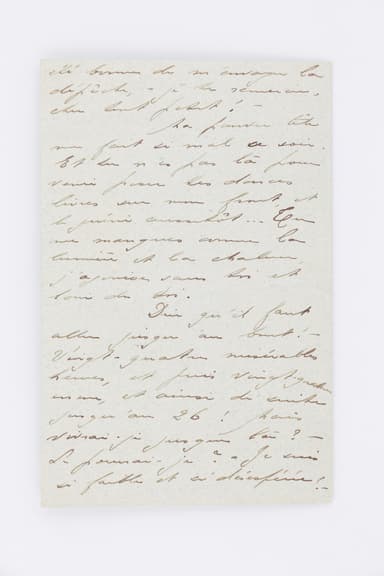 été bonne de m'envoyer la
dépêche, - je te remercie,
cher tout petit! -
Ma pauvre tête
me fait si mal ce soir.
Et tu n'es pas là pour
venir poser tes douces
lèvres sur mon front, et
le guérir aussitôt... Tu
me manques comme la
lumière et la chaleur,
j'agonise sans toi et
loin de toi.
Dire qu'il faut
aller jusqu'au bout! -
Vingt-quatre misérables
heures, et puis vingt-quatre
encore, et ainsi de suite
jusqu'au 26! Mais
vivrai-je jusque là? -
Le pourrai-je? - Je suis
si faible et si désespérée! -